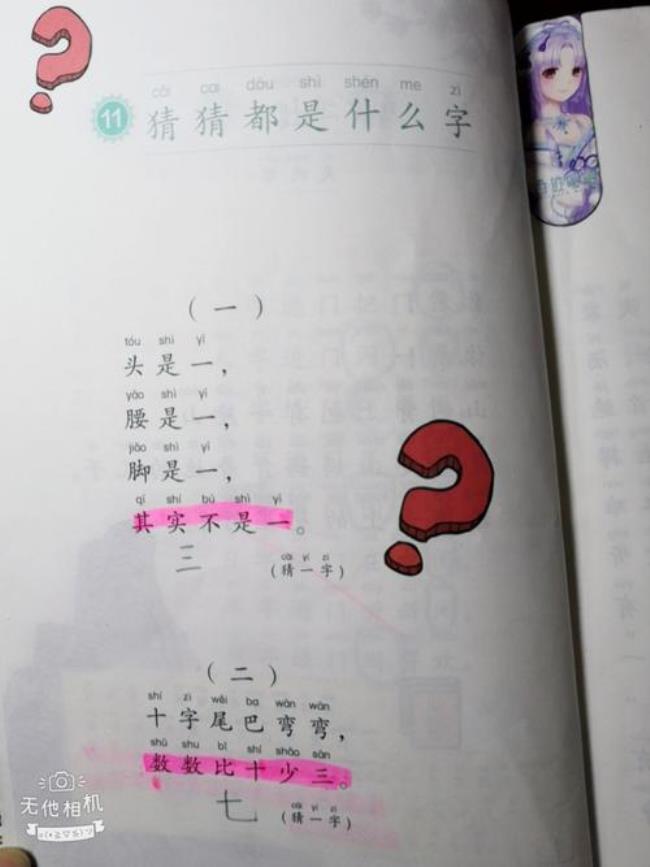 cāi cai dōu shì shén me zì
11 猜猜都是什么字
（一）
tóu shì yī
头是一，
yāo shì yī
腰是一，
jiǎo shì yī
脚是一，
qí shí bú shì yī
其实不是一。
三
cāi yí zì
（猜一字）
（二）
shí zì wěi ba wān wān
十字尾巴弯弯，
shǔ shu bǐ shí shǎo sān
数数比十少三。
七
cāi yí zì
（猜一字）
无他相机